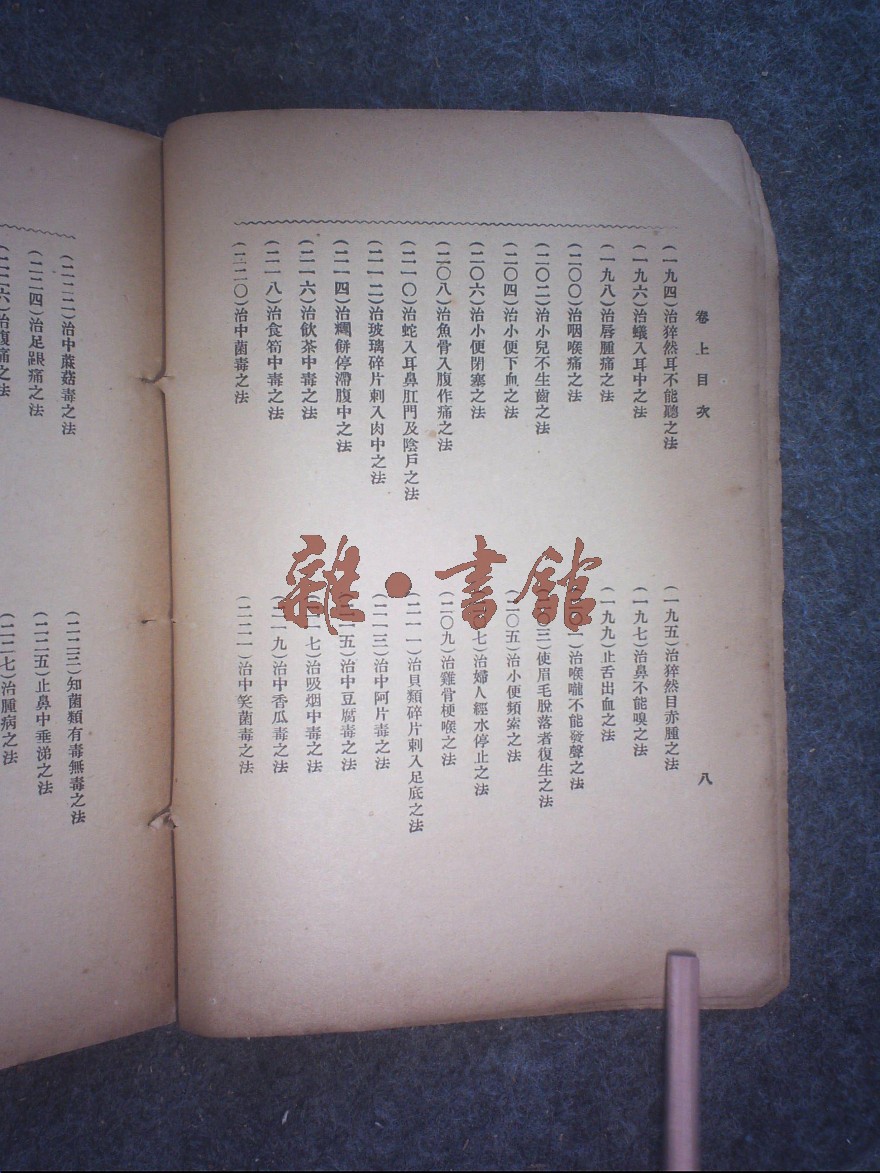 卷上目次
八
(一九四)治猝然耳不能聽之法
(一九五)治猝然目赤腫之法
(一九六)治蟻入耳中之法
(一九七)治鼻不能嗅之法
(一九八)治唇腫痛之法
(一九九)止舌出血之法
(二〇〇)治咽喉痛之法
治喉嚨不能發聲之法
(二〇二)治小兒不生齒之法
〇三)使眉毛脫落者復生之法
(二〇四)治小便下血之法
(二〇五)治小便頻索之法
(二〇六)治小便閉塞之法
七)治婦人經水停止之法
(二〇八)治魚骨入腹作痛之法
(二〇九)治雞骨梗喉之法
(二一〇)治蛇入耳鼻肛門及陰戶之法
(二一一)治貝類碎片刺入足底之法
(二一二)治玻璃碎片刺入肉中之法
(二一三)治中阿片毒之法
(二一四)治糰餅停滯腹中之法
(二一五)治中豆腐毒之法
(二一六)治飲茶中毒之法
一七)治吸烟中毒之法
(二一八)治食筍中毒之法
(二一九)治中香瓜毒之法
(二二〇)治中菌毒之法
(二二一)治中笑菌毒之法
(二二二)治中蔴菇毒之法
(二二三)知菌類有毒無毒之法
(二二四)治足跟痛之法
(二二五)止鼻中垂涕之法
(二二六)治腹痛之法
(二二七)治腫病之法
雜·書館